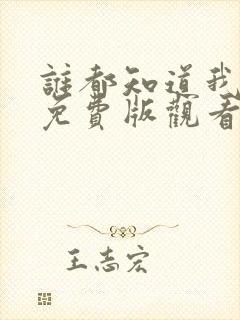 誰都知道我
免費版觀看
王志宏